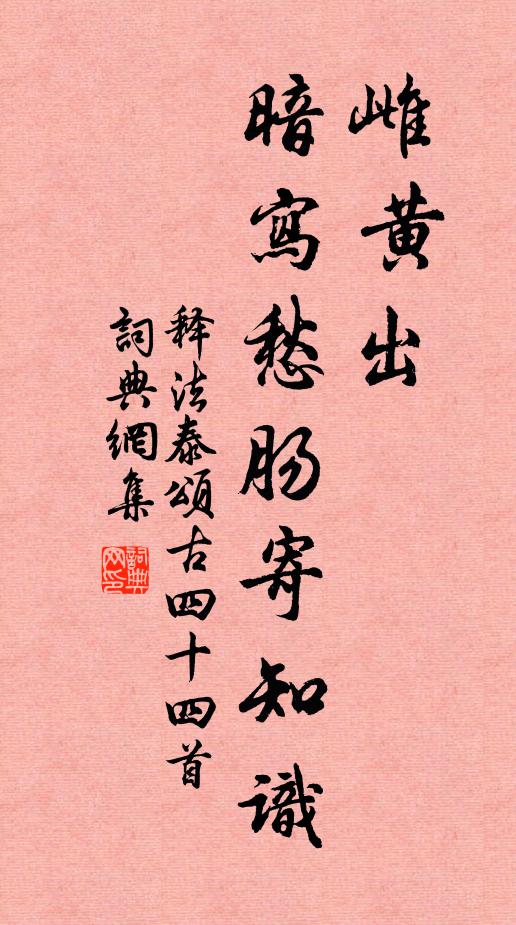 雌黄出
暗寫愁肠寄知識
释法泰頌古四十四首
詞典網集
詞典
网印